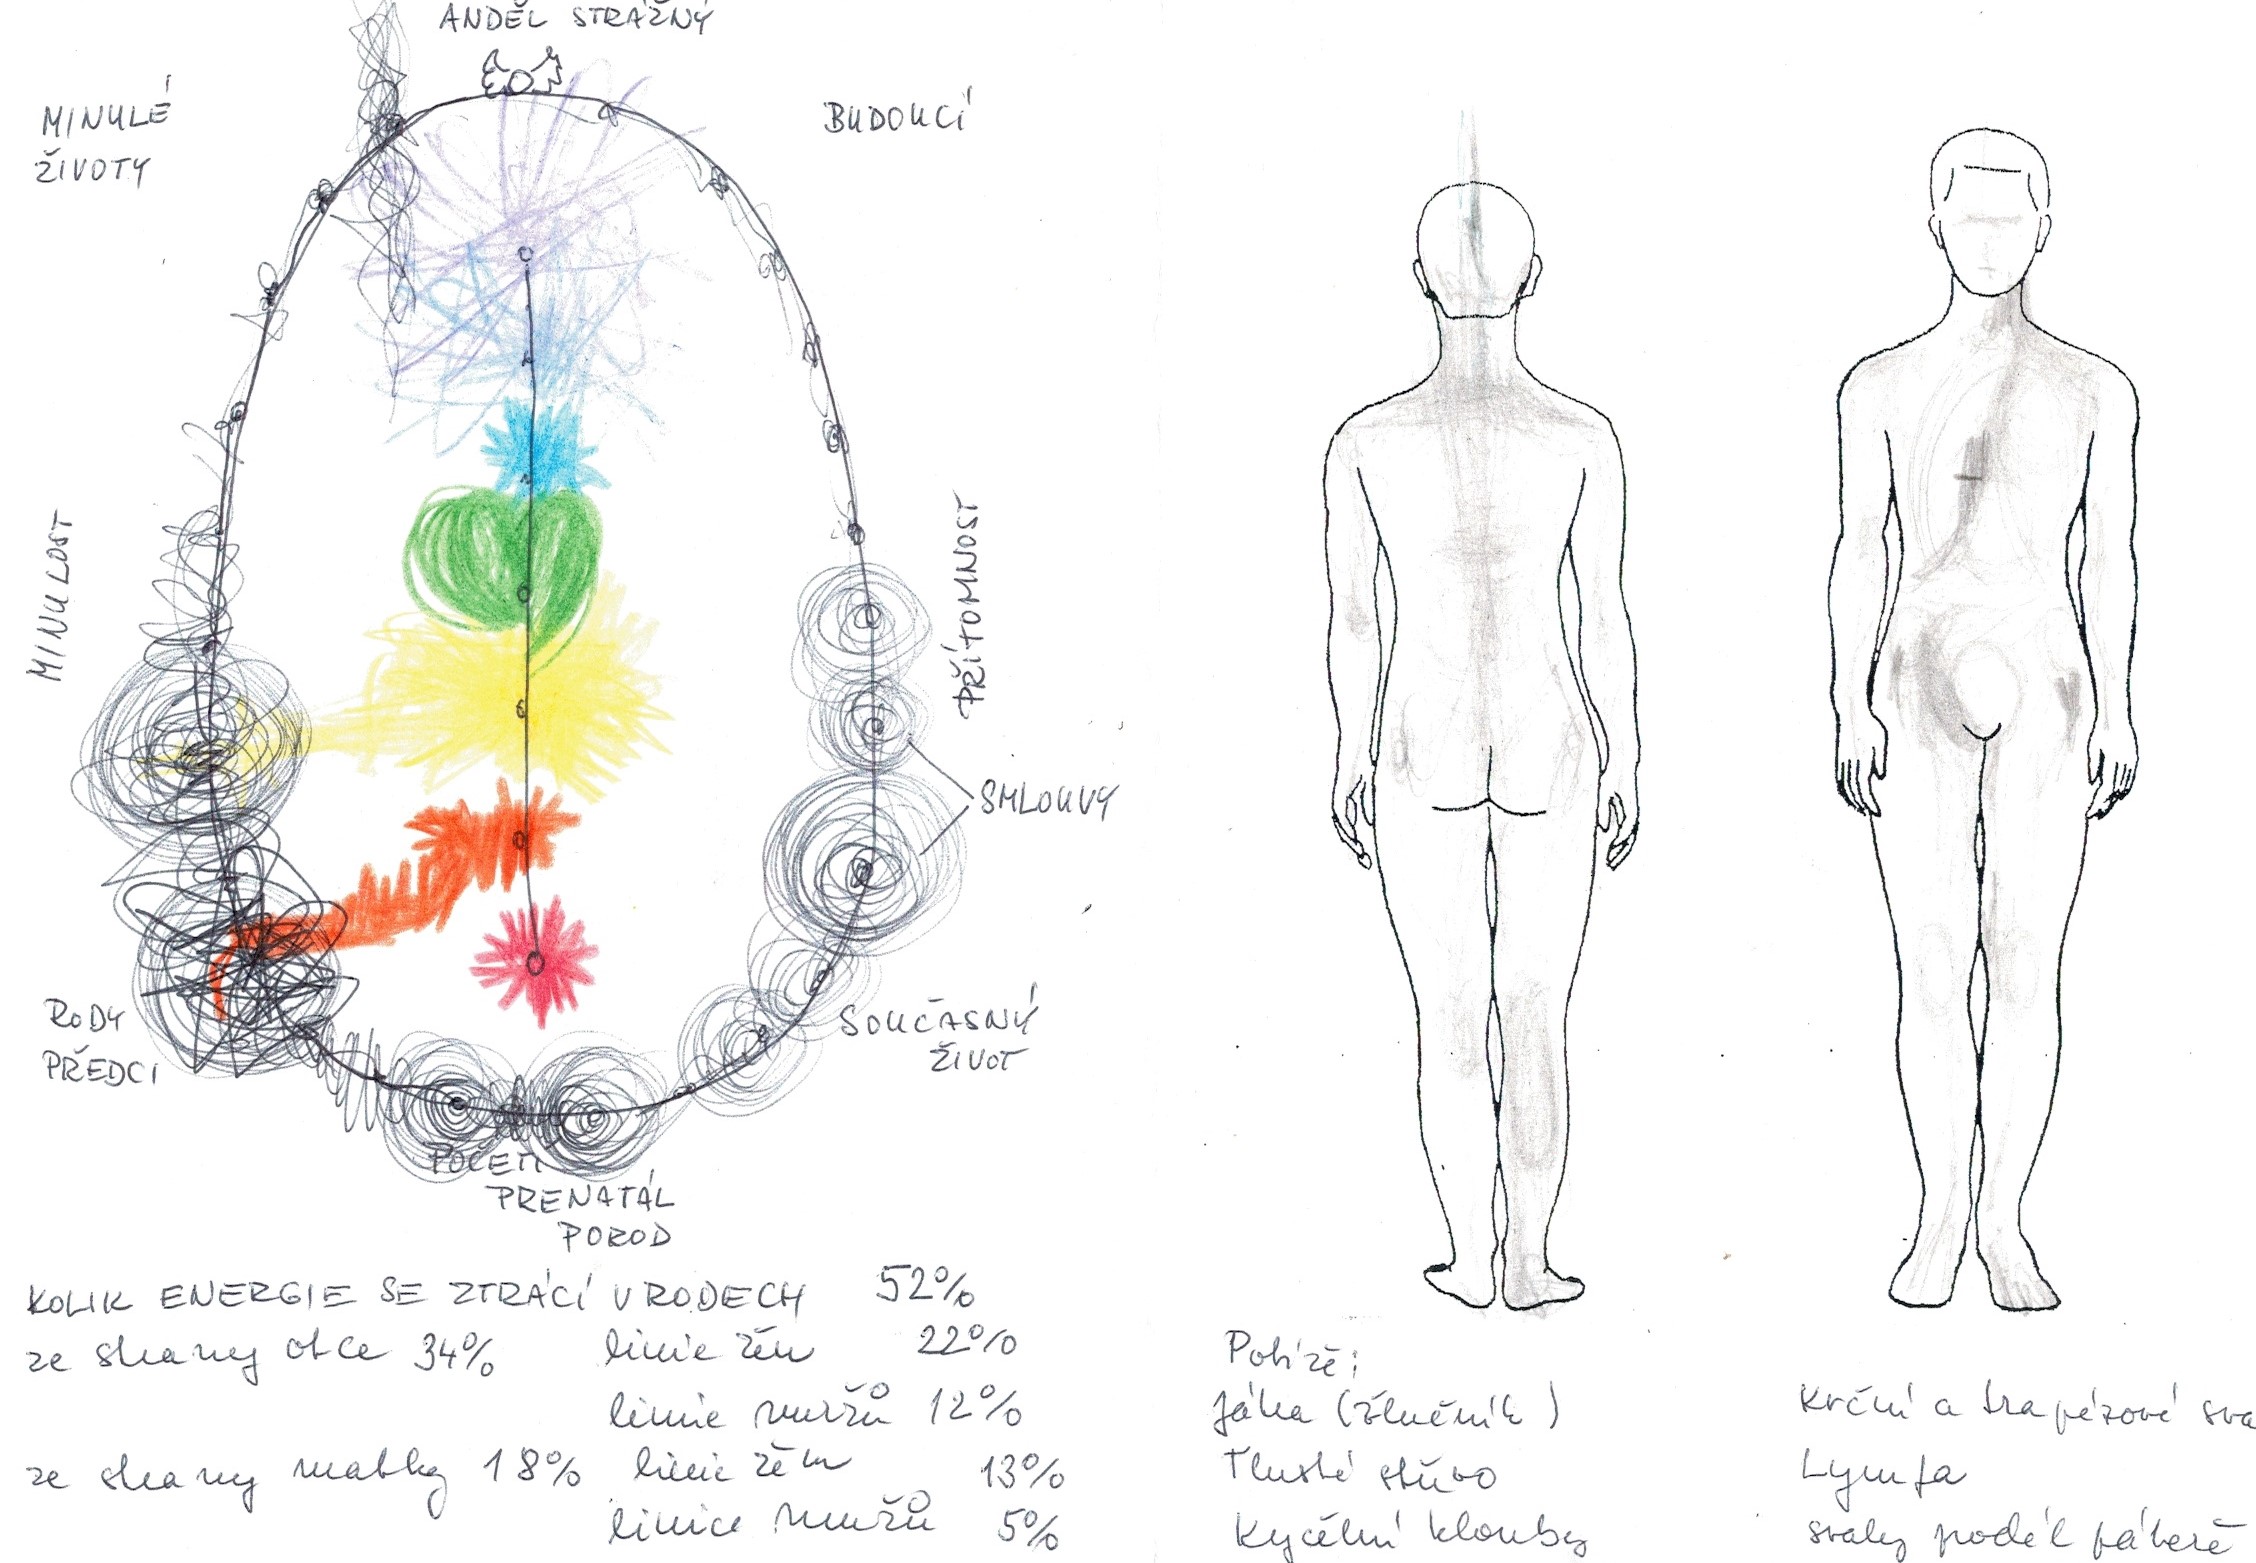 ANDĚL STRÁŽNÝ
MINULÉ
ŽIVOTY
BUDOUCÍ
MINULOST
PŘÍTOMNOST
SMLOUVY
RODY
PŘEDCI
SOUČASNÝ
ŽIVOT
POČETÍ
PRENATÁL
POROD
KOLIK ENERGIE SE ZTRÁCÍ V RODECH 52%
ze strany otce 34% linie žen 22%
linie mužů 12%
ze strany matky 18% linie žen 13%
linie mužů 5%
Potíže:
játra (žlučník)
Tlusté střevo
Kyčelní klouby
Krční a trapézové sva
Lymfa
svaly podél páteře